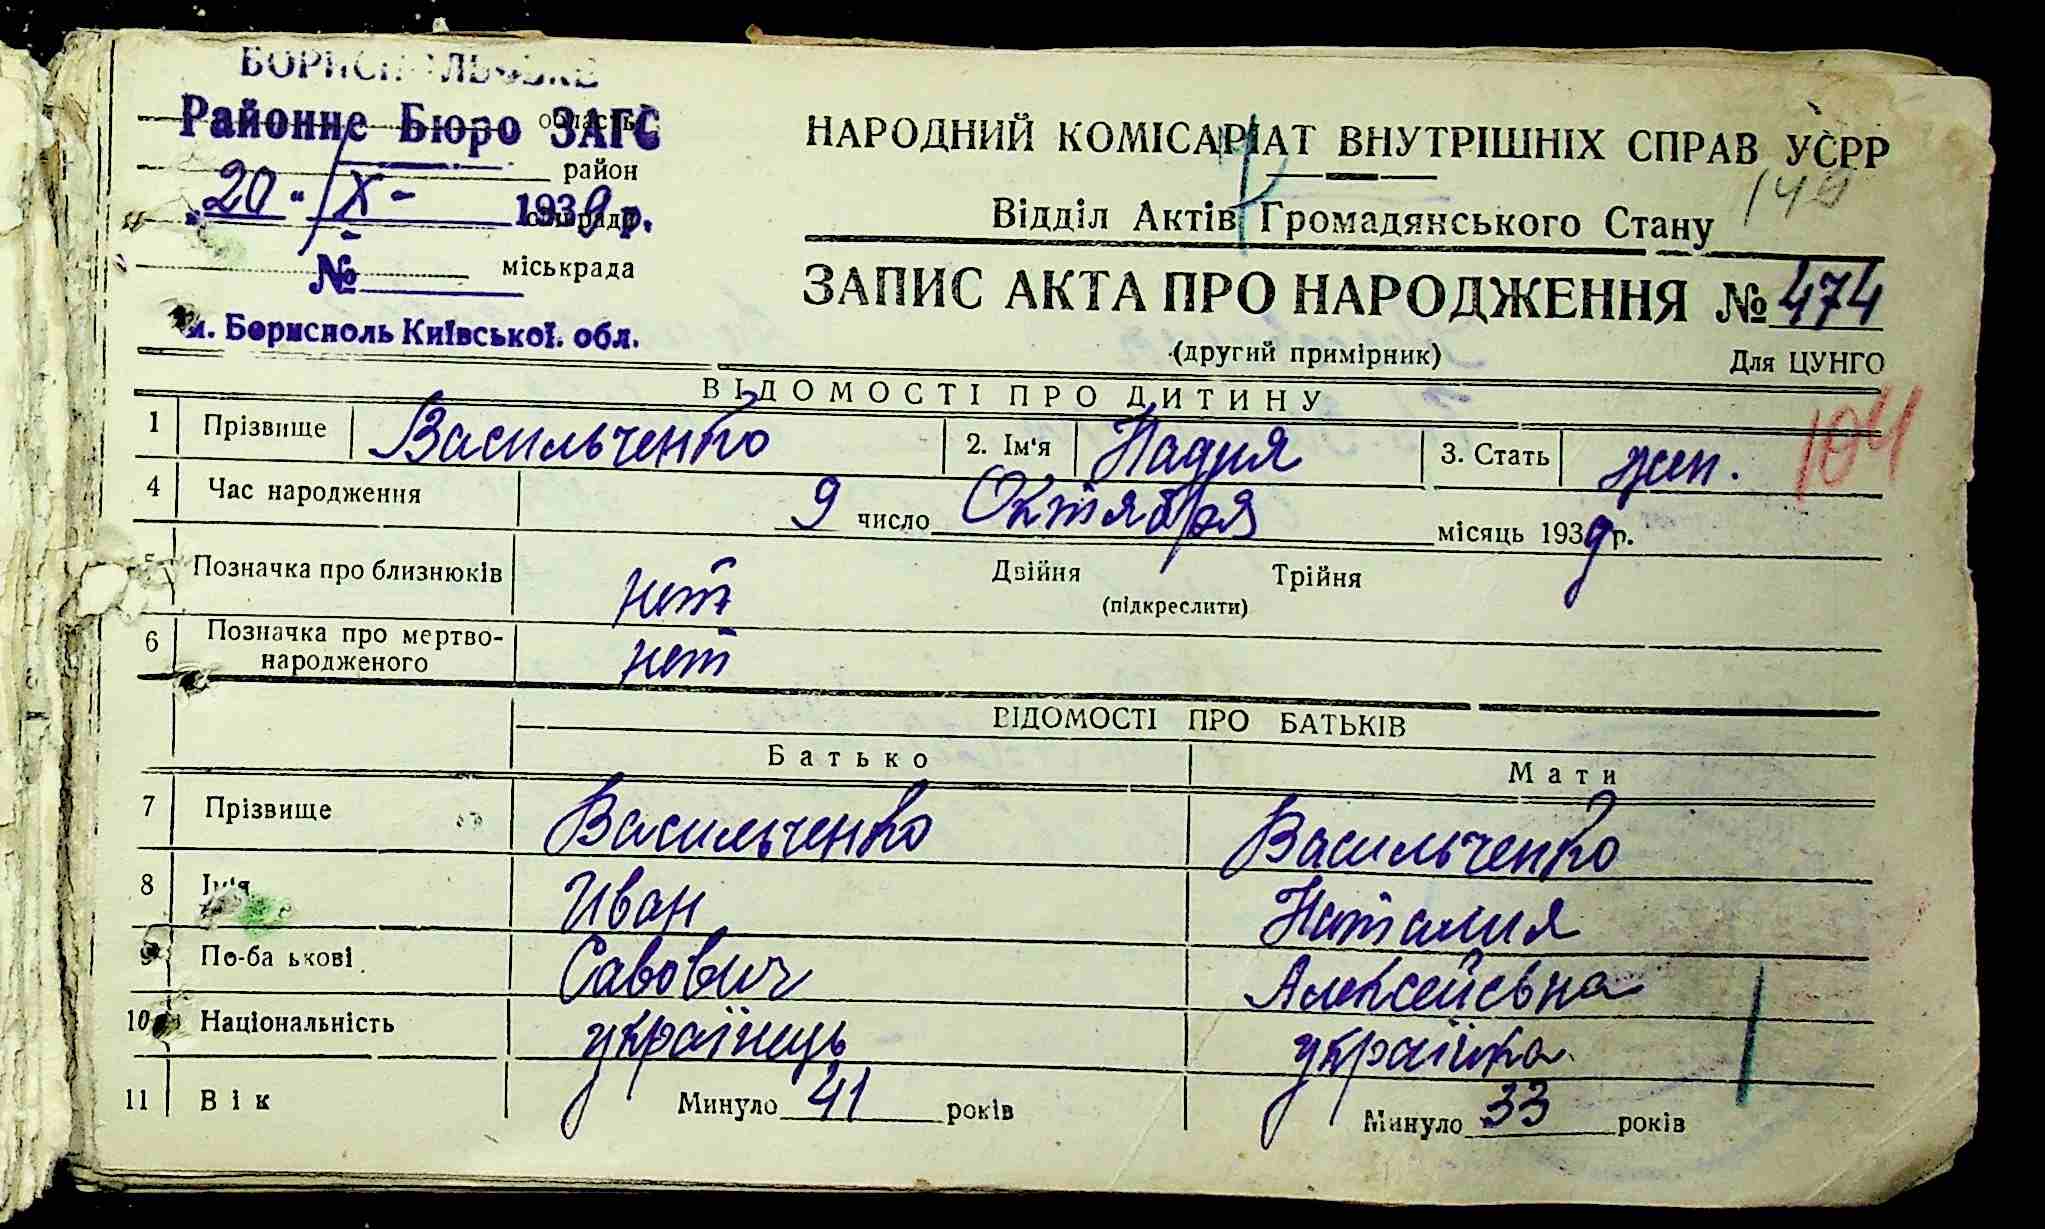 БОРИСПІЛЬСЬКЕ
Районне Бюро ЗАГС
область
район
"20" X - 1939 р.
сільрада
№ міськрада
м. Бориспіль Київської. обл.
НАРОДНИЙ КОМІСАРІАТ ВНУТРІШНІХ СПРАВ УСРР
149
Відділ Актів Громадянського Стану
ЗАПИС АКТА ПРО НАРОДЖЕННЯ № 474
(другий примірник) Для ЦУНГО
ВІДОМОСТІ ПРО ДИТИНУ
104
1 Прізвище Васильченко 2. Ім'я Надия 3. Стать жен.
4 Час народження 9 число Октября місяць 1939 р.
5 Позначка про близнюків нет Двійня Трійня
(підкреслити)
6 Позначка про мертво-
народженого нет
ВІДОМОСТІ ПРО БАТЬКІВ
Батько Мати
7 Прізвище Васильченко Васильченко
8 Ім'я Иван Наталия
9 По-ба ькові Савович Алексеевна
10 Національність українець українка
11 Вік Минуло 41 років Минуло 33 років